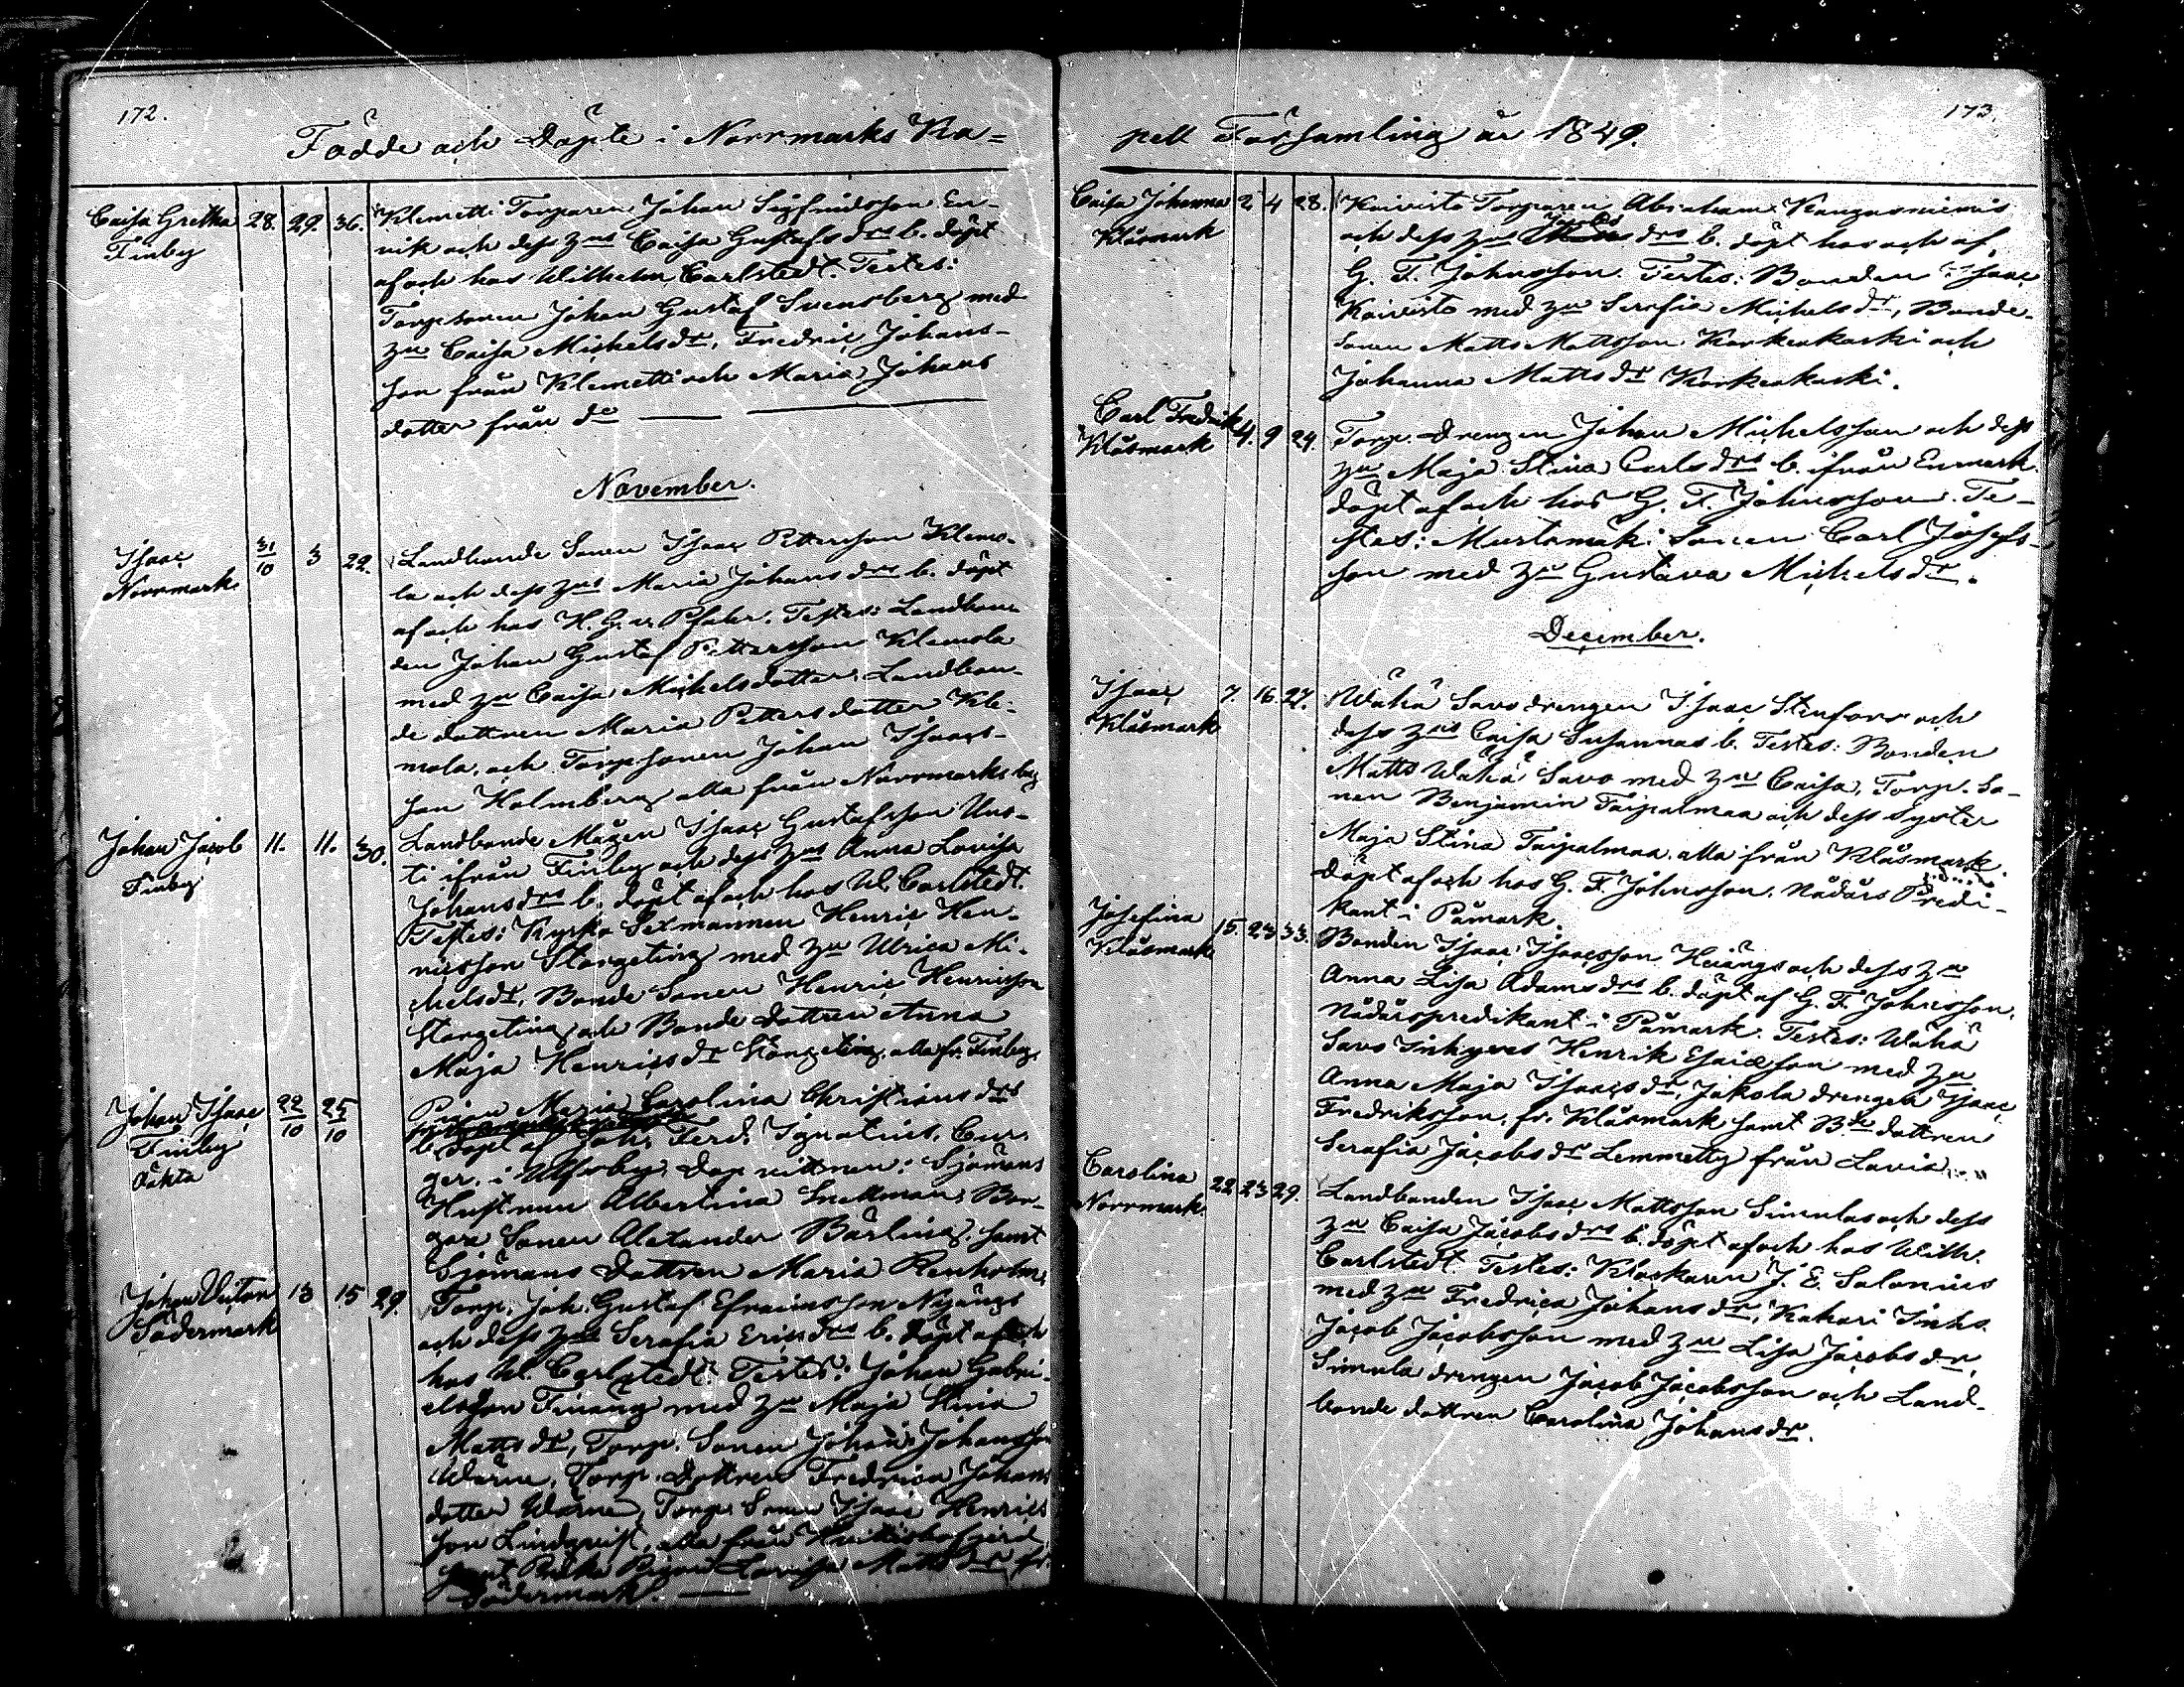 172.
Födde och Döpte i Norrmarks Ka=
Caisa Gretha 28. 29. 36. Klemetti Torparen Johan Sigfridsson En-
Finby
vik och dess hus Caisa Gustafs drs b. döpt
af och hos Wilhelm Carlstedt. Testes:
Torpsonen Johan Gustaf Svensberg med
hu Caisa Michelsdr, Fredric Johans-
son från Klemetti och Maria Johans
dotter från do
November.
Isaac 31/10 3 22. Landbonde Sonen Isaac Pettersson Klemo-
Norrmark.
la och dess hus Maria Johans drs b. döpt
af och hos H. G. v. Pfaler. Testes: Landbon-
den Johan Gustaf Pettersson Klemola
med hu Caisa Michelsdotter, Landbon-
de dottren Maria Pettersdotter Kle-
mola, och Torpsonen Johan Isaacs-
son Holmberg alla från Norrmarks by
Johan Jacob 11. 11. 30. Landbonde Mågen Isaac Gustafsson Uus-
Finby
ti ifrån Finby och dess hus Anna Lovisa
Johansdrs b. döpt af och hos W. Carlstedt.
Testes: Kyrko Sexmannen Henric Hen-
ricsson Storgeting med hu Ulrica Mi-
chelsdr, Bonde Sonen Henric Henricsson
Storgeting och Bonde Dottren Anna
Maja Henricsdr Storgeting, alla fr. Finby.
Johan Isaac 22/10 25/10 Pigan Maria Carolina Christians drs
Finby
Oäkta
b. döpt af Joh. Ferd. Ignatius, Cur-
ger. i Ulfsby. Dop vittnen: Sjömans
Hustrun Albertina Snellman, Bor-
gare Sonen Alexander Bärling, samt
Sjömans Dottren Maria Renholm.
Johan Victor 13 15 29. Torp. Joh. Gustaf Efraimsson Nyängs
Södermark
och dess hus Serafia Erics drs b. döpt af och
hos W. Carlstedt. Testes: Johan Gabri-
elsson Finäng med hu Maja Stina
Mattsdr, Torp. Sonen Johan Johansson
Wärne, Torp. Dottren Fredrica Johans
dotter Wärne, Torp. Sonen Isaac Henrics
son Lindqvist, alla från
samt Pigan Lovisa Matts dr fr.
Södermark.
173.
pell Församling år 1849.
Caisa Johanna 2 4 28. Koivisto Torparen Abraham Kangasniemis
Klåsmark
och dess hus Jacobs drs b. döpt hos och af
G. F. Johnsson. Testes: Bonden Isaac
Koivisto med hu Serafia Michelsdr, Bonde-
sonen Matts Mattsson Korkeakoski och
Johanna Mattsdr Korkeakoski.
Carl Fredrik 4. 9 24. Torp. Drengen Johan Michelsson och dess
Klåsmark
hu Maja Stina Carls drs b. ifrån Enmark.
döpt af och hos G. F. Johnsson. Te-
stes: Murtomäki Sonen Carl Josefs-
son med hu Gustava Michelsdr.
December.
Isaac 7. 16. 27. Wähä Savo drengen Isaac Stenfors och
Klåsmark
dess hus Caisa Susannas b. Testes: Bonden
Matts Wähä Savo med hu Caisa, Torp. So-
nen Benjamin Taipalmaa och dess syster
Maja Stina Taipalmaa. alla från Klåsmark.
Döpt af och hos G. F. Johnsson. Nådårs Predi-
kant i Påmark.
Josefina 15. 23 33. Bonden Isaac Isaacsson Heiängs och dess hu
Klåsmark
Anna Lisa Adams drs b. döpt af G. F. Johnsson.
Nådårspredikant i Påmark. Testes: Wähä
Savo Inhyses Henrik Esaiasson med hu
Anna Maja Isaacsdr, Jakola drengen Isaac
Fredriksson, fr. Klåsmark samt Bde dottren
Serafia Jacobsdr Lemmetty från Lavia.
Carolina 22. 23 29. Landbonden Isaac Mattsson Simulas och dess
Norrmark.
hu Caisa Jacobs drs b. döpt af och hos Wilh.
Carlstedt. Testes: Klockaren J. E. Salonius
med hu Fredrica Johansdr, Kahari Inhs.
Jacob Jacobsson med hu Lisa Jacobsdr,
Simula drengen Jacob Jacobsson och Land-
bonde dottren Carolina Johansdr.